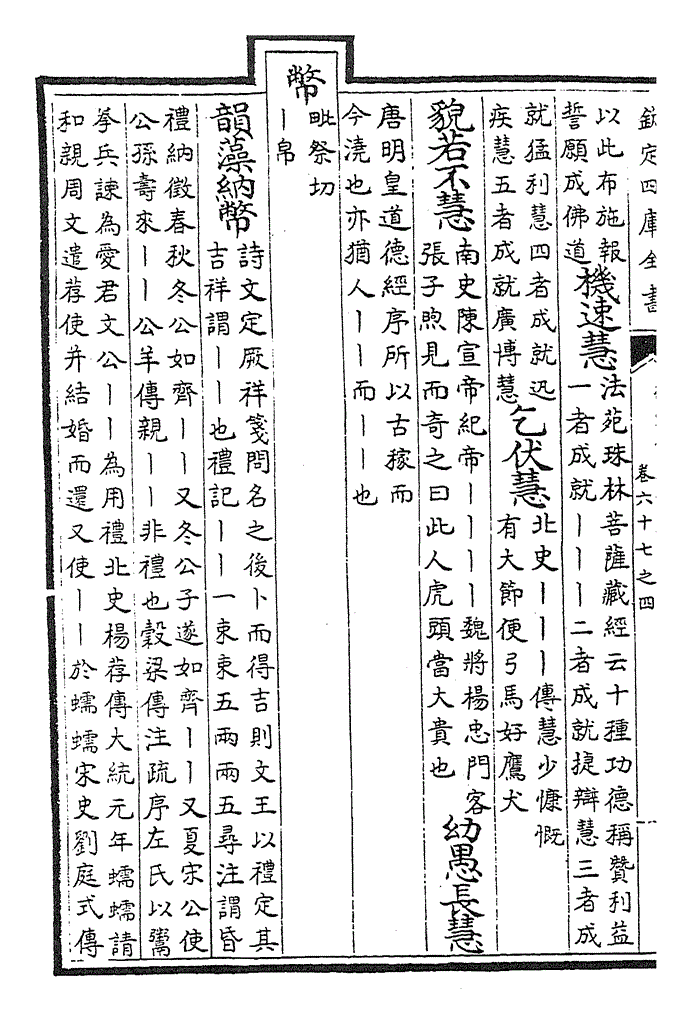 欽定四庫全書
卷六十七之四
以此布施報
誓願成佛道
機速慧
法苑珠林菩薩藏經云十種功德稱贊利益
一者成就｜｜｜二者成就捷辯慧三者成
就猛利慧四者成就迅
疾慧五者成就廣博慧
乞伏慧
北史｜｜｜傳慧少慷慨
有大節便弓馬好鷹犬
貌若不慧
南史陳宣帝紀帝｜｜｜｜魏將楊忠門客
張子煦見而奇之曰此人虎頭當大貴也
幼愚長慧
唐明皇道德經序所以古稼而
今澆也亦猶人｜｜而｜｜也
幣
毗祭切
｜帛
韻藻納幣
詩文定厥祥箋問名之後卜而得吉則文王以禮定其
吉祥謂｜｜也禮記｜｜一束束五兩兩五尋注謂昏
禮納徵春秋冬公如齊｜｜又冬公子遂如齊｜｜又夏宋公使
公孫壽來｜｜公羊傳親｜｜非禮也穀梁傳注疏序左氏以鬻
拳兵諫為愛君文公｜｜為用禮北史楊荐傳大統元年蠕蠕請
和親周文遣荐使并結婚而還又使｜｜於蠕蠕宋史劉庭式傳